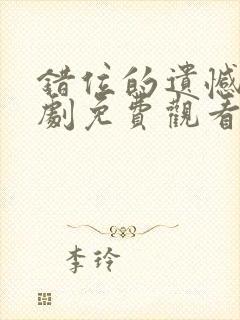 錯位的遺憾
劇免費觀看
李玲